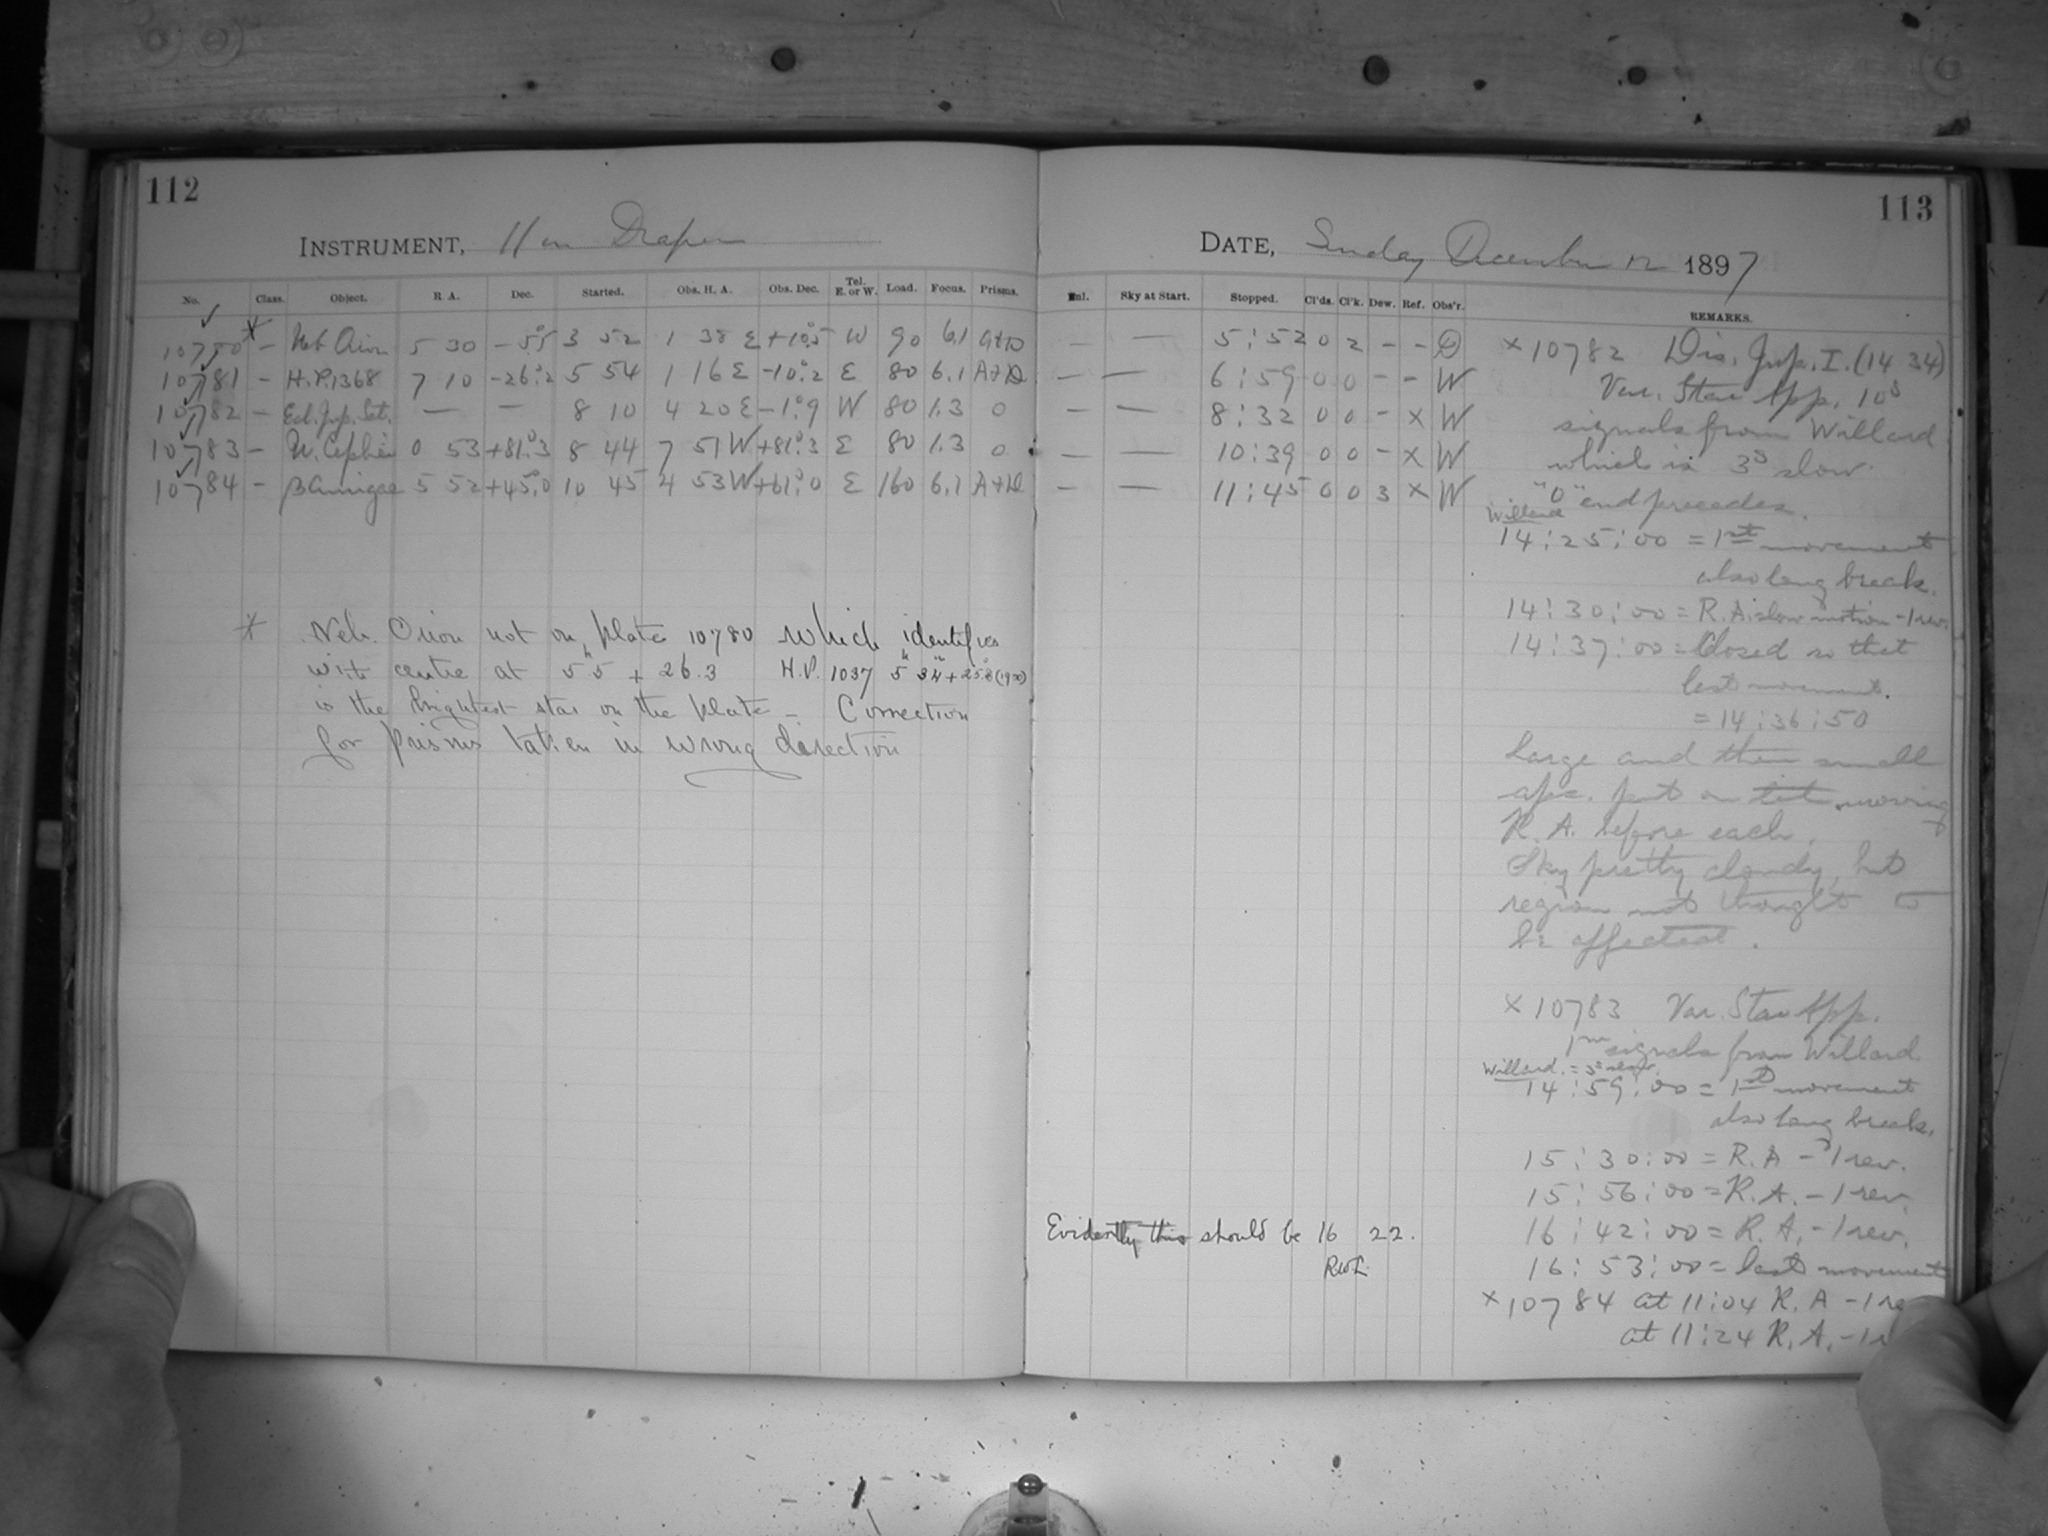 112
INSTRUMENT, 11 in Draper
No. Class. Object. R. A. Dec. Started. Obs. H. A. Obs. Dec. Tel. E. or W. Load. Focus. Prisms.
10780 * – Neb. Orion 5 30 –5.°5 3 52 1 38 E +10.°5 W 90 6.1
10781 – H.P. 1368 7 10 –26.°2 5 54 1 16 E –10.°2 E 80 6.1 A+D
10782 – Ecl. Jup. Sat. — — 8 10 4 20 E –1.°9 W 80 1.3 0
10783 – U. Cephei 0 53 +81.°3 8 44 7 51 W +81.°3 E 80 1.3 0
10784 – β Aurigae 5 52 +45.°0 10 45 4 53 W +61.°0 E 160 6.1 A+D
* Neb. Orion not on plate 10780 which identifies
with centre at 5h 5 + 26.3 H.P. 1037 5h 34m + 25.°8 (1900)
is the brightest star on the plate – Correction
for prisms taken in wrong direction
113
DATE, Sunday December 12 1897
Enl. Sky at Start. Stopped. Cl'ds. Cl'k. Dew. Ref. Obs'r. REMARKS.
– — 5:52 0 2 – – D
– — 6:59 0 0 – – W
– — 8:32 0 0 – X W
– — 10:39 0 0 – X W
– — 11:45 0 0 3 X W
× 10782 Dis. Jup. I. (14 34)
Var. Star App. 10s
signals from Willard
which is 3s slow.
"0" end precedes.
Willard
14:25:00 = 1st movement
also long break.
14:30:00 = R.A. slow motion – 1 rev.
14:37:00 = Closed so that
last movement.
= 14:36:50
Large and then small
apx. put on tit moving
R. A. before each.
Sky pretty cloudy, but
region not thought to
be affected.
× 10783 Var. Star App.
1m signals from Willard.
Willard = 3s slow.
14:59:00 = 1st movement
also long break.
15:30:00 = R.A – 1 rev.
15:56:00 = R.A. – 1 rev.
16:42:00 = R.A. – 1 rev.
Evidently this should be 16 22.
RWL.
16:53:00 = last movement
× 10784 at 11:04 R. A – 1 re
at 11:24 R. A. – 1 r